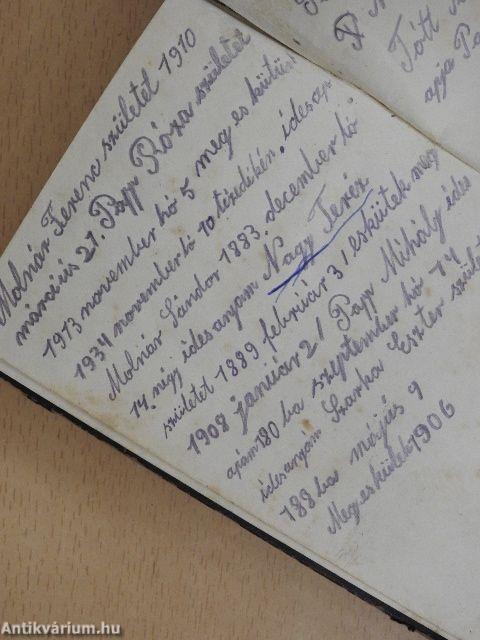 Molnár Ferenc született 1910
március 21. Papp Róza született
1913 november hó 5 meg es küttünk
1934 november hó 10 tizedikén. ides ap
Molnár Sándor 1883. december hó
14. négy idesanyam Nagy Teréz
született 1889 február 3, esküttek meg
1908 január 2, Papp Mihály édes
apám 180 ba szeptember hó 14
idesanyám Szarka Eszter szület
188 ba május 9
Megesküttek 1906
Tótt
apja Pa
Antikvárium.hu